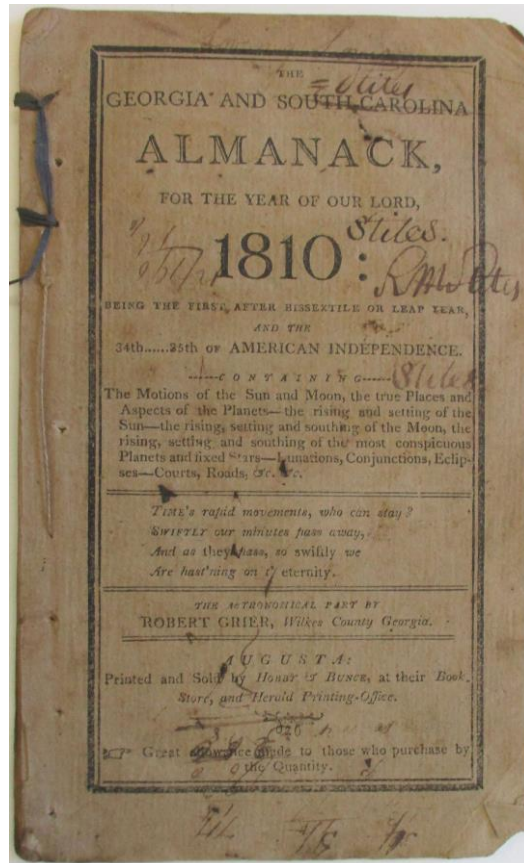 THE
Stiles
GEORGIA AND SOUTH CAROLINA
ALMANACK,
FOR THE YEAR OF OUR LORD,
Stiles.
1810:
BEING THE FIRST AFTER BISSEXTILE OR LEAP YEAR,
AND THE
34th......35th OF AMERICAN INDEPENDENCE.
------CONTAINING------
Stiles
The Motions of the Sun and Moon, the true Places and
Aspects of the Planets—the rising and setting of the
Sun—the rising, setting and southing of the Moon, the
rising, setting and southing of the most conspicuous
Planets and fixed Stars—Lunations, Conjunctions, Eclip-
ses—Courts, Roads, &c. &c.
TIME's rapid movements, who can stay?
SWIFTLY our minutes pass away,
And as they pass, so swiftly we
Are hast'ning on to eternity.
THE ASTRONOMICAL PART BY
ROBERT GRIER, Wilkes County Georgia.
AUGUSTA:
Printed and Sold by HOBBY & BUNCE, at their Book
Store, and Herald Printing-Office.
Great allowance made to those who purchase by
the Quantity.